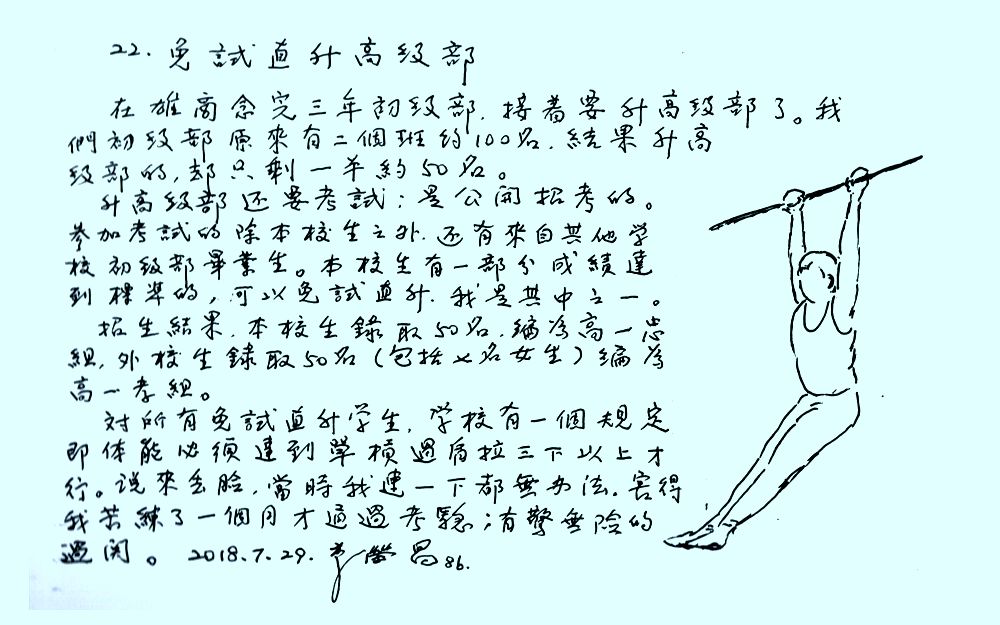 22. 免試直升高级部
在雄商念完三年初级部，接着要升高级部了。我
們初级部原來有二個班约100名，結果升高
级部的，却只剩一半約50名。
升高级部还要考試；是公開招考的。
参加考試的除本校生之外，还有來自其他学
校初级部畢業生。本校生有一部分成績達
到標準的，可以免試直升，我是其中之一。
招生結果，本校生錄取50名，編為高一忠
組，外校生錄取50名（包括七名女生）編為
高一孝組。
对所有免試直升学生，学校有一個規定
即体能必須達到單槓過肩拉三下以上才
行。说來丢脸，當時我連一下都無办法，害得
我苦練了一個月才通過考驗；有驚無险的
過関。 2018.7.29. 昌86.